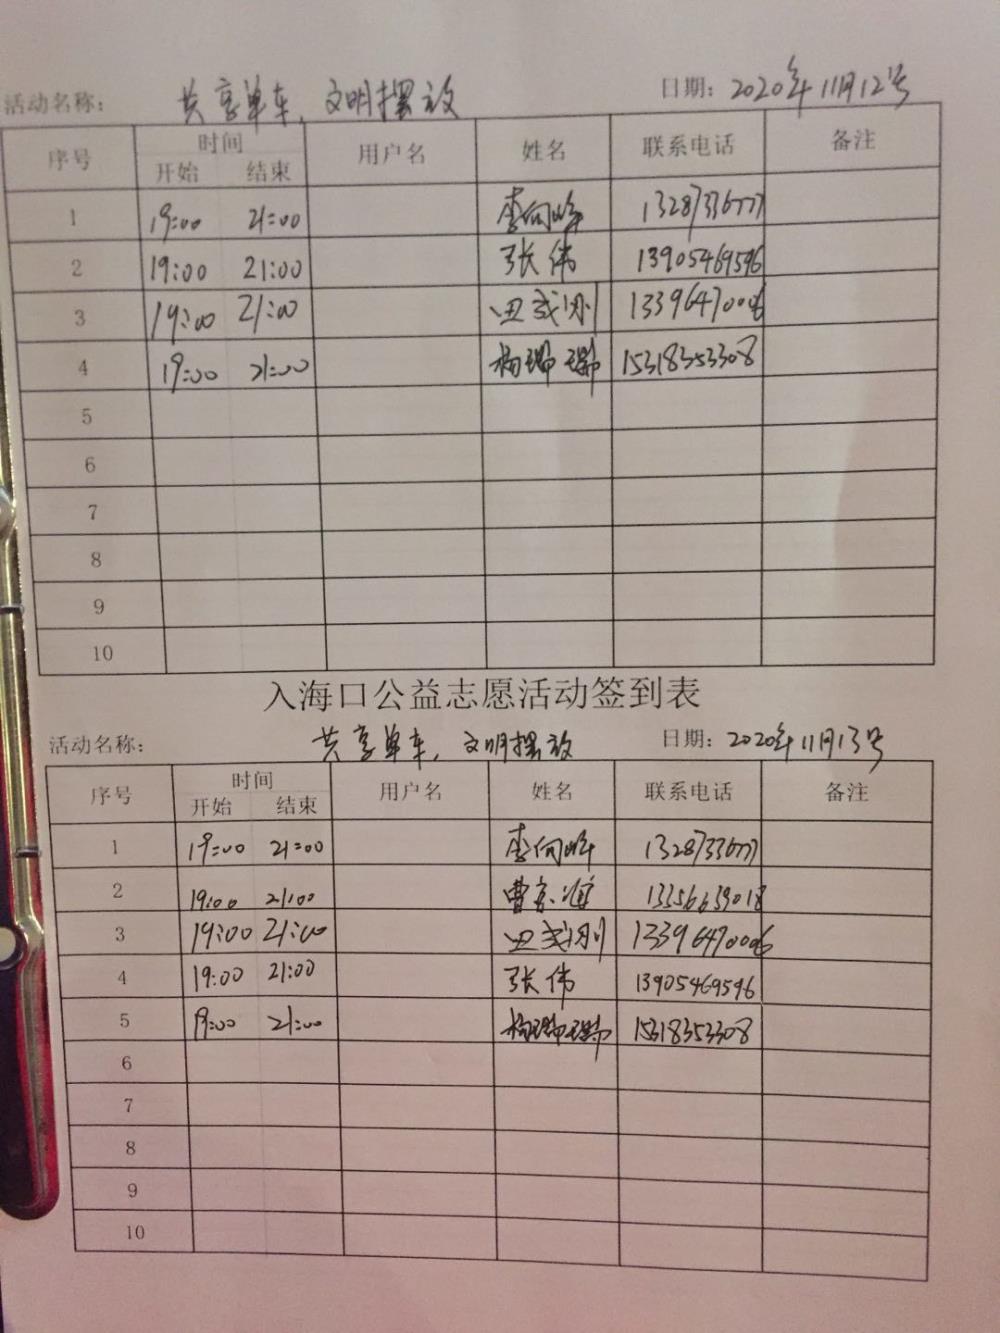 活动名称： 共享单车，文明摆放 日期：2020年11月12号
序号 时间 用户名 姓名 联系电话 备注
开始 结束
1 19:00 21:00 李向峰
2 19:00 21:00 张伟 13905469596
3 19:00 21:00 田戎刚 13396470006
4 19:00 21:00 杨瑞瑞 15318353308
5
6
7
8
9
10
入海口公益志愿活动签到表
活动名称： 共享单车，文明摆放 日期：2020年11月13号
序号 时间 用户名 姓名 联系电话 备注
开始 结束
1 19:00 21:00 李向峰
2 19:00 21:00 13356639018
3 19:00 21:00 田戎刚 13396470006
4 19:00 21:00 张伟 13905469596
5 19:00 21:00 杨瑞瑞 15318353308
6
7
8
9
10